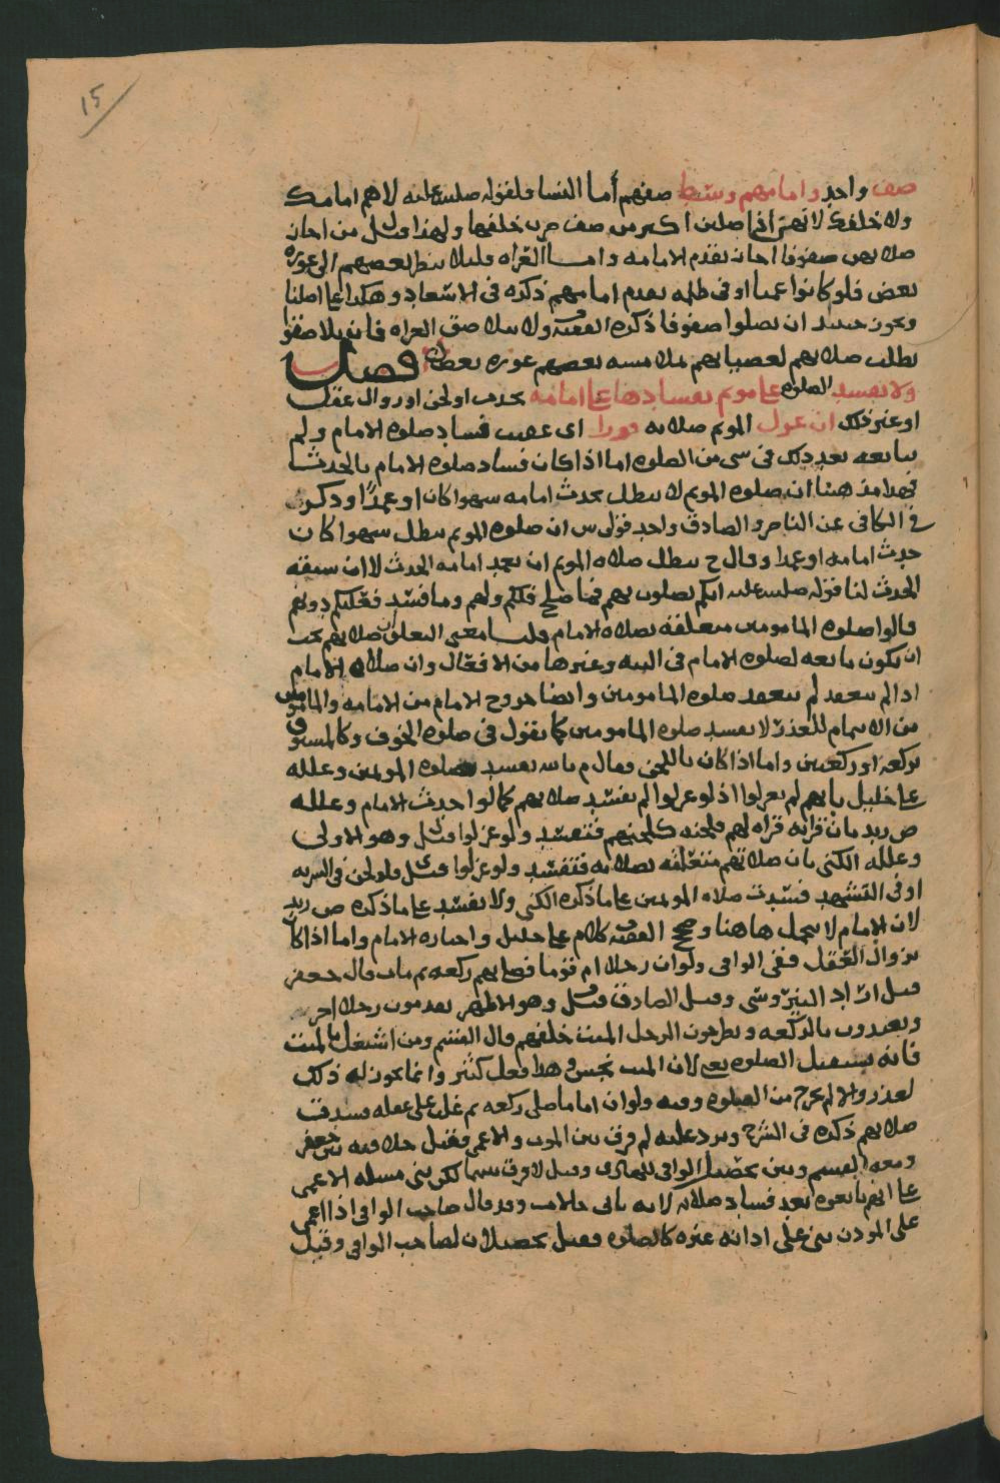 15
صف واحد وامامهم وسط صفهم أما النسا فلقوله صلى عليه لاهم امامك
ولا خلفك لانهن اذا صلين اكثر من صف خلفها ولهذا قيل من اجاز
صلاتهن صفوفا اجاز تقدم الامامه واما العراه فليلا ينظر بعضهم الى عوره
بعض فلو كانوا عميا او في ظلمه تقدم امامهم ذكره في الانتصار وهكذا على اصلنا
ويجوز حينئذ ان يصلوا صفوفا ذكره الفقيه ولا صف العراه فان تلاصقوا
بطلت صلاتهم لعصيانهم بملامسه بعضهم عوره بعض فصل
ولا تفسد الصلوه على موتم بفسادها على امامه بحدث او لحن او زوال عقل
او غير ذلك ان عزل الموتم صلاته فورا اى عقيب فساد صلوه الامام ولم
يتابعه بعد ذلك في شى من الصلوه اما اذا كان فساد صلوه الامام بالحدث
فهذا مذهبنا ان صلوه الموتم لا تبطل بحدث امامه سهوا كان او عمدا وذكر
في الكافى عن الناصر والصادق واحد قولى س ان صلوه الموتم تبطل سهوا كان
حدث امامه او عمدا وقال ح تبطل صلاه الموتم ان تعمد امامه الحدث لا ان سبقه
الحدث لنا قوله صلى عليه انكم تصلون بهم فما صلح فلكم ولهم وما فسد فعليكم دونهم
قالوا صلوه المامومين متعلقه بصلاه الامام قلنا معنى التعلق صلاتهم يجب
ان تكون تابعه لصلوه الامام في النيه وغيرها من الافعال وان صلاه الامام
اذا لم تنعقد لم تنعقد صلوه المامومين وايضا خروج الامام من الامامه والمامومين
من الائتمام للعذر لا يفسد صلوه المامومين كما نقول في صلوه الخوف وكالمسبوق
بركعه او ركعتين واما اذا كان باللحن فقال م بالله تفسد صلوه المؤتمين وعلله
على خليل بانهم لم يعزلوا اذ لو عزلوا لم تفسد صلاتهم كما لو احدث الامام وعلله
ص زيد بان قرائه قراه لهم فلحنه كلحنهم فتفسد ولو عزلوا قيل وهو الاولى
وعلله الكنى بان صلاتهم متعلقه بصلاته فتفسد ولو عزلوا قيل فلو لحن في السريه
او في التشهد فسدت صلاه المؤتمين على ما ذكره الكنى ولا تفسد على ما ذكره ص زيد
لان الامام لا يتحمل هاهنا وصحح الفقيه كلام على خليل واختاره الامام واما اذا كان
بزوال العقل ففي الوافى ولو ان رجلا ام قوما فصلى بهم ركعه ثم مات قال جعفر
قيل اراد النيروسى وقيل الصادق قيل وهو الاظهر يقدمون رجلا اخر
ويعتدون بالركعه ويطرحون الرجل الميت خلفهم قال القسم ومن اشتغل بالميت
فانه يستقبل الصلوه لان الميت نجس وهذا فعل كثير وانما يجوز له ذلك
لعذر والا لم يخرج من الصلوه وفيه ولو ان اماما صلى ركعه ثم غلب على عقله فسدت
صلاتهم ذكره في الشرح ويرد عليه لم فرق بين الموت والاعمى فقيل خلافيه بين جعفر
ومعه القسم وبين تحصيل الوافى للهادى وقيل لا فرق بينهما لكن بنى مسئله الاعمى
على انهم تابعوه بعد فساد صلاته لانه ياتى حالات وقد قال صاحب الوافى اذا اغمى
على الموذن بنى على اذانه غيره كالصلوه فقيل تحصيلان لصاحب الوافى وقيل